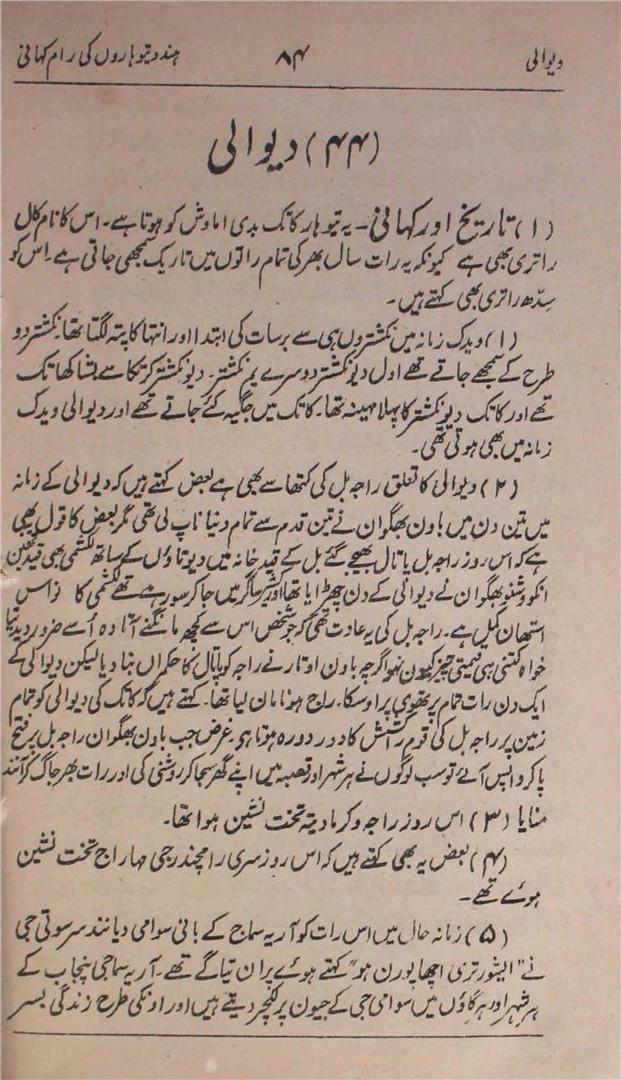 دیوالی ۸۴ ہندو تیوہاروں کی رام کہانی
(۴۴) دیوالی
(۱) تاریخ اور کہانی۔ یہ تیوہار کاتک بدی اماوش کو ہوتا ہے۔ اس کا نام کال
راتری بھی ہے کیونکہ یہ رات سال بھر کی تمام راتوں میں تاریک سمجھی جاتی ہے۔ اس کو
سِدّھ راتری بھی کہتے ہیں۔
(۱) ویدک زمانہ میں نکشتروں ہی سے برسات کی ابتدا اور انتہا کا پتہ لگتا تھا۔ نکشتر دو
طرح کے سمجھے جاتے تھے اول دیو نکشتر دوسرے یم نکشتر۔ دیو نکشتر کرتکا سے بشاکھا تک
تھے اور کاتک دیو نکشتر کا پہلا مہینہ تھا۔ کاتک میں جگیہ کئے جاتے تھے اور دیوالی ویدک
زمانہ میں بھی ہوتی تھی۔
(۲) دیوالی کا تعلق راجہ بل کی کتھا سے بھی ہے بعض کہتے ہیں کہ دیوالی کے زمانہ
میں تین دن میں باون بھگوان نے تین قدم سے تمام دنیا ناپ لی تھی مگر بعض کا قول یہ بھی
ہے کہ اس روز راجہ بل پاتال بھیجے گئے بل کے قید خانہ میں دیوتاؤں کے ساتھ لکشمی بھی قید تھیں
انکو وشنو بھگوان نے دیوالی کے دن چھڑایا تھا اور ساگر میں جا کر سو رہے تھے لکشمی کا نواس
استھان کمل ہے۔ راجہ بل کی یہ عادت تھی کہ جو شخص اس سے کچھ مانگنے آتا وہ اُسے ضرور دیدیتا
خواہ کتنی ہی قیمتی چیز کیوں نہ ہو اگرچہ باون اوتار نے راجہ کو پاتال کا حکمراں بنا دیا لیکن دیوالی کے
ایک دن رات تمام پرتھوی پر اوسکا راج ہونا مان لیا تھا۔ کہتے ہیں کہ کاتک کی دیوالی کو تمام
زمین پر راجہ بل کی قوم راکشش کا دور دورہ ہوتا ہو۔ غرض جب باون بھگوان راجہ بل پر فتح
پا کر واپس آئے تو سب لوگوں نے ہر شہر اور قصبہ میں اپنے گھر سجا کر روشنی کی اور رات بھر جاگ کر آنند
منایا (۳) اس روز راجہ وکرمادیتہ تخت نشین ہوا تھا۔
(۴) بعض یہ بھی کہتے ہیں کہ اس روز سری رامچندر جی مہاراج تخت نشین
ہوئے تھے۔
(۵) زمانہ حال میں اس رات کو آریہ سماج کے بانی سوامی دیانند سرسوتی جی
نے "ایشور تری اچھا پورن ہو" کہتے ہوئے پران تیاگے تھے۔ آریہ سماجی پنجاب کے
ہر شہر اور ہر گاؤں میں سوامی جی کے جیون پر لکچر دیتے ہیں اور اونکی طرح زندگی بسر